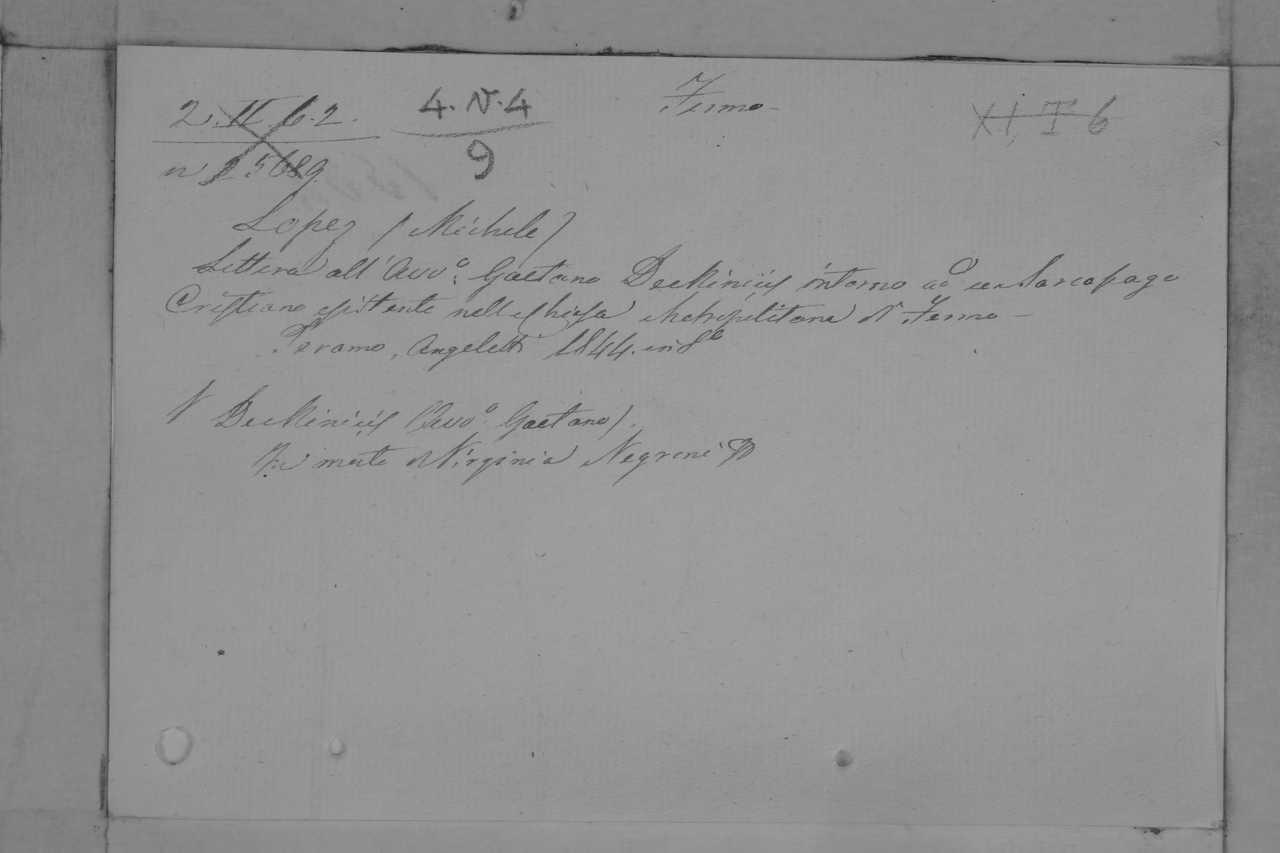 2. II 6. 2. 4. N. 4 Fermo - XI, I 6
n 25689 9
Lopez (Michele)
Lettera all' Avv.o Gaetano DeMinicis intorno ad un Sarcofago
Cristiano esistente nella Chiesa Metropolitana di Fermo -
Teramo, Angeletti 1844. in 8o
V DeMinicis (Avv.o Gaetano).
In morte di Virginia Negroni